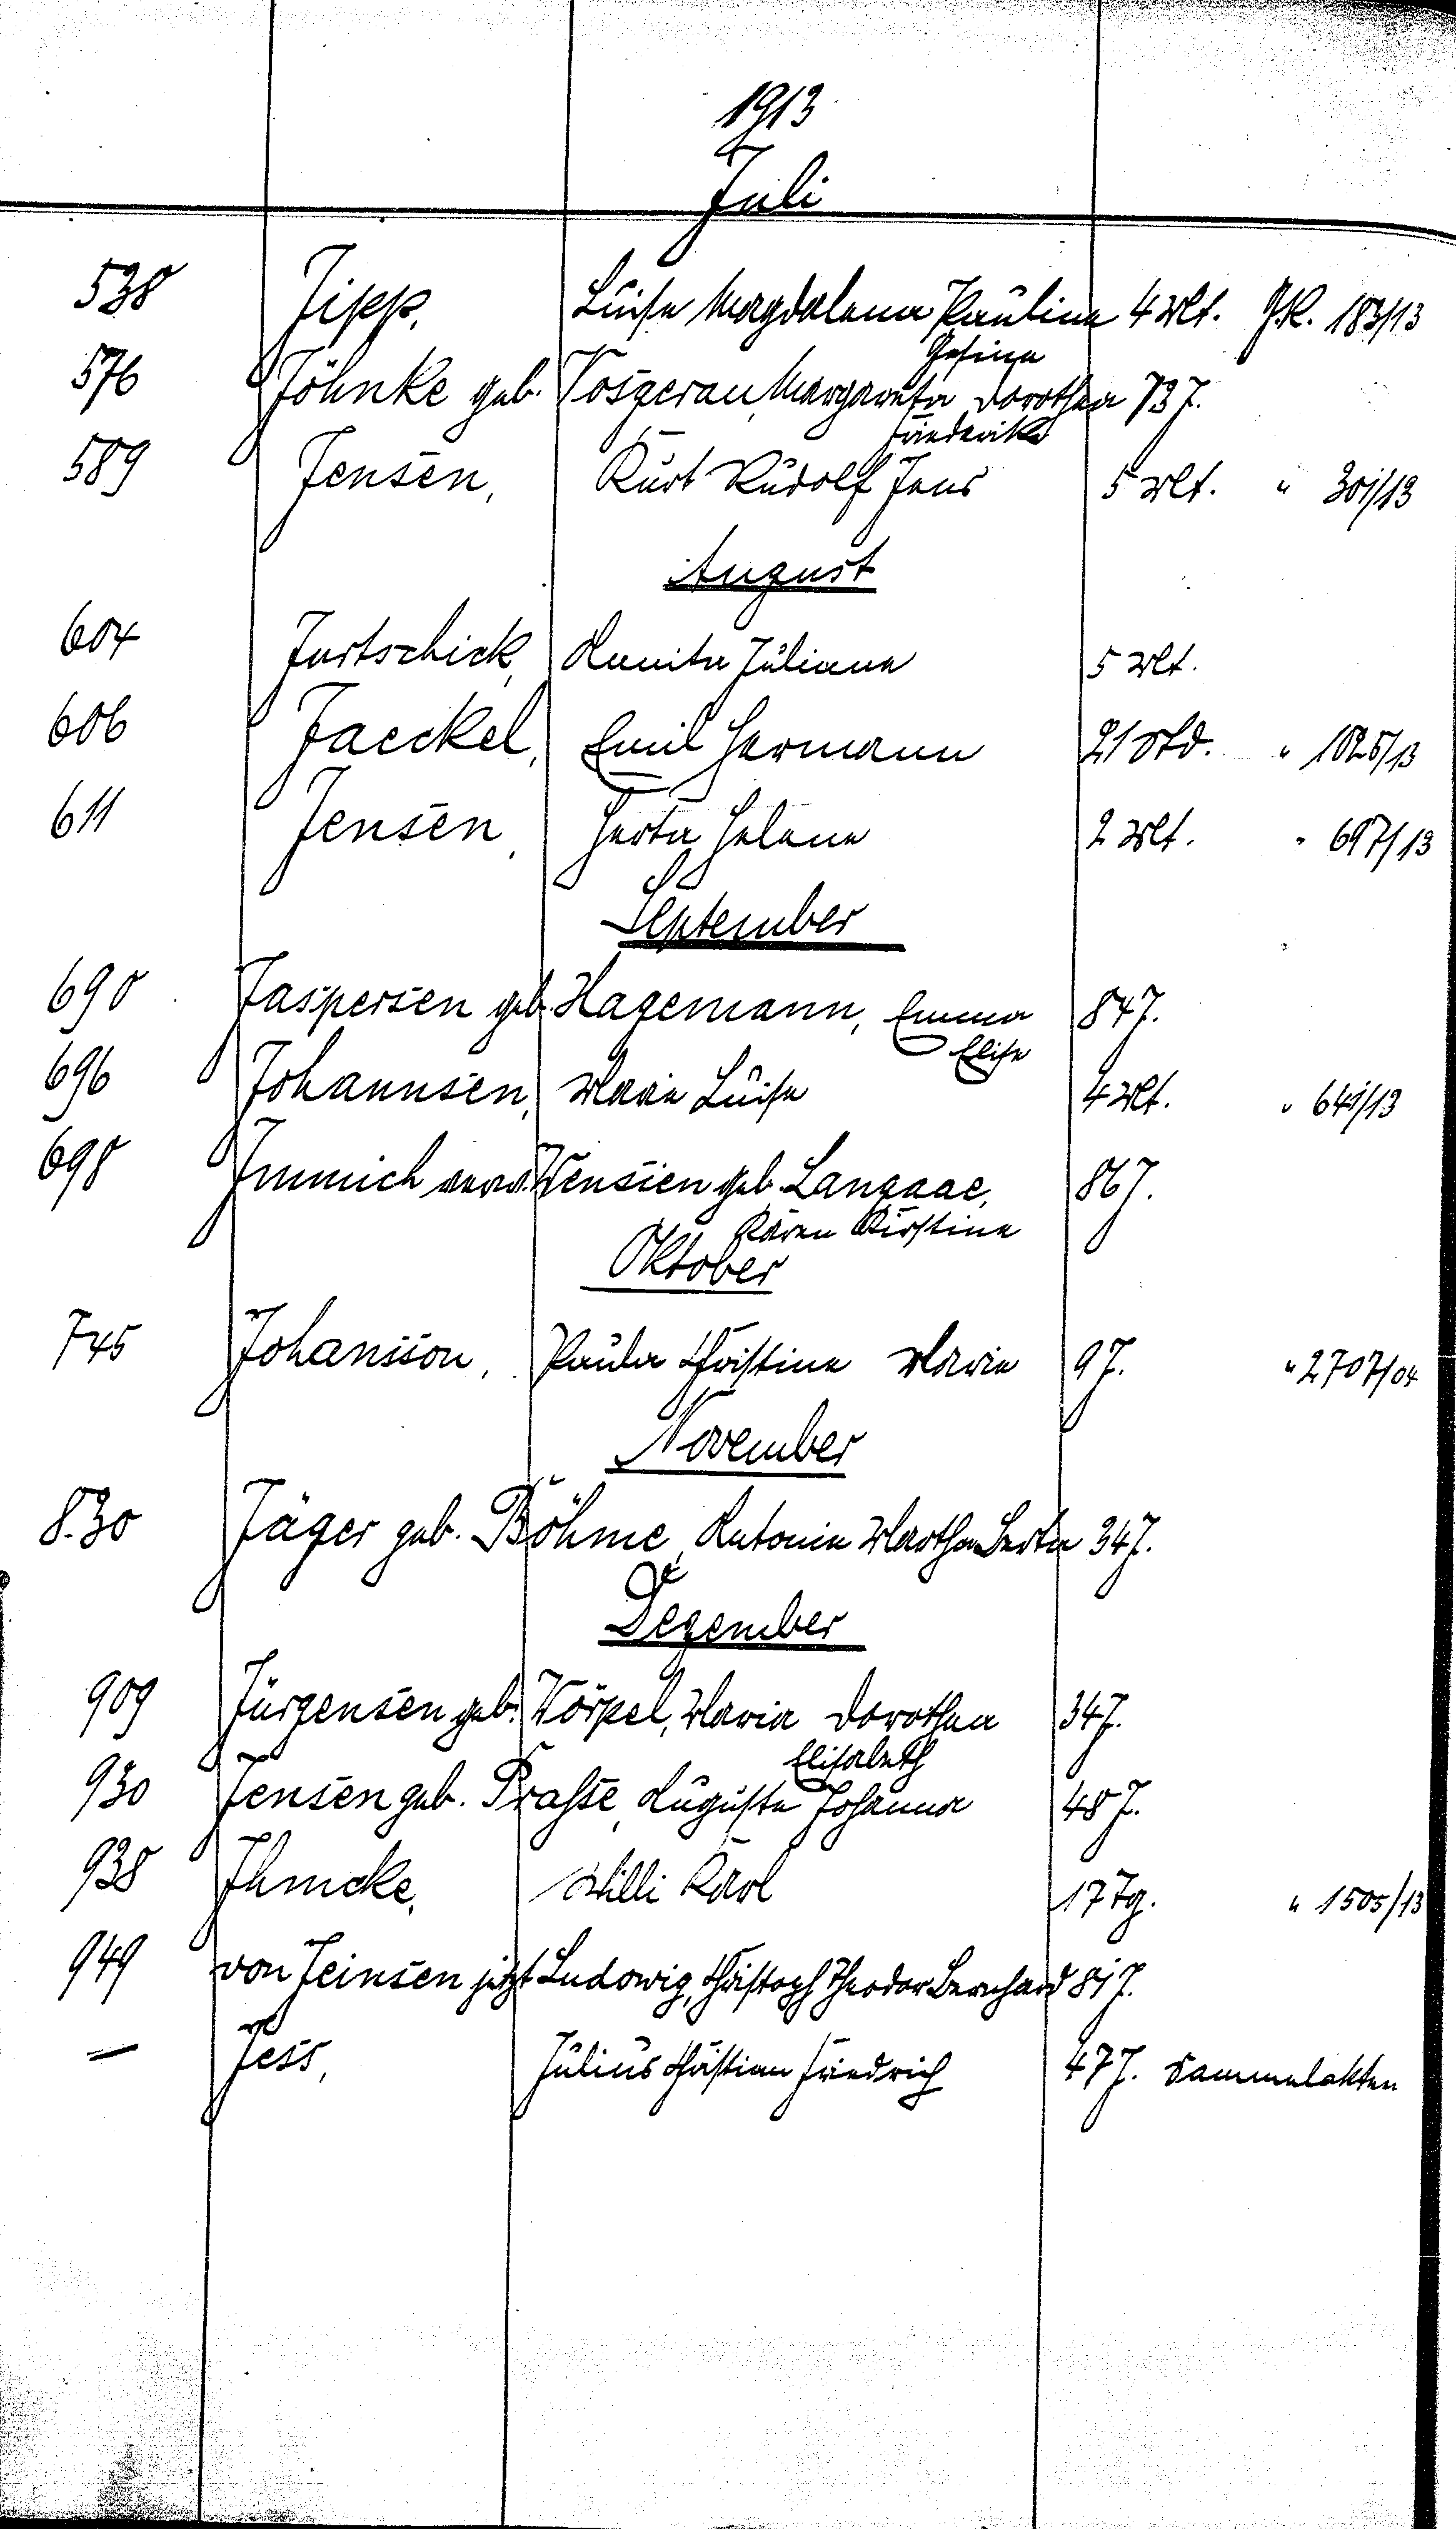 1913
Juli
538 Jipp, Luise Magdalena Pauline 4 Mt. G.R. 183/13
Gesine
576 Jöhnke geb. Vosgerau, Margareta Dorothea 73 J.
Friederike
589 Jensen, Kurt Rudolf Jens 5 Mt. " 301/13
August
604 Jurtschick, Anita Juliane 5 Mt.
606 Jaeckel, Emil Hermann 21 Std. " 1025/13
611 Jensen, Herta Helene 2 Mt. " 697/13
September
690 Jaspersen geb. Hagemann, Emma 84 J.
Elise
696 Johannsen, Marie Luise 4 Mt. " 641/13
698 Immich verw. Wensien geb. Langaae, 86 J.
Karen Kirstine
Oktober
745 Johansson, Paula Christine Marie 9 J. " 2707/04
November
830 Jäger geb. Böhme, Antonie Martha Berta 34 J.
Dezember
909 Jürgensen geb. Vörpel, Maria Dorothea 34 J.
Elisabeth
930 Jensen geb. Prasse, Auguste Johanna 48 J.
938 Ihmcke, Willi Karl 17 Tg. " 1505/13
949 von Jeinsen jetzt Ludowig, Christoph Theodor Bernhard 81 J.
— Jess, Julius Christian Friedrich 47 J. Sammelakten